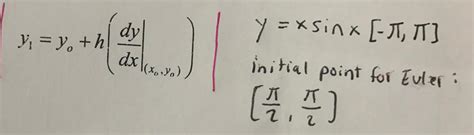 y₁ = yₒ + h(dy/dx|(xₒ, yₒ))
y = x sin x [-π, π]
initial point for Euler:
[π/2, π/2]